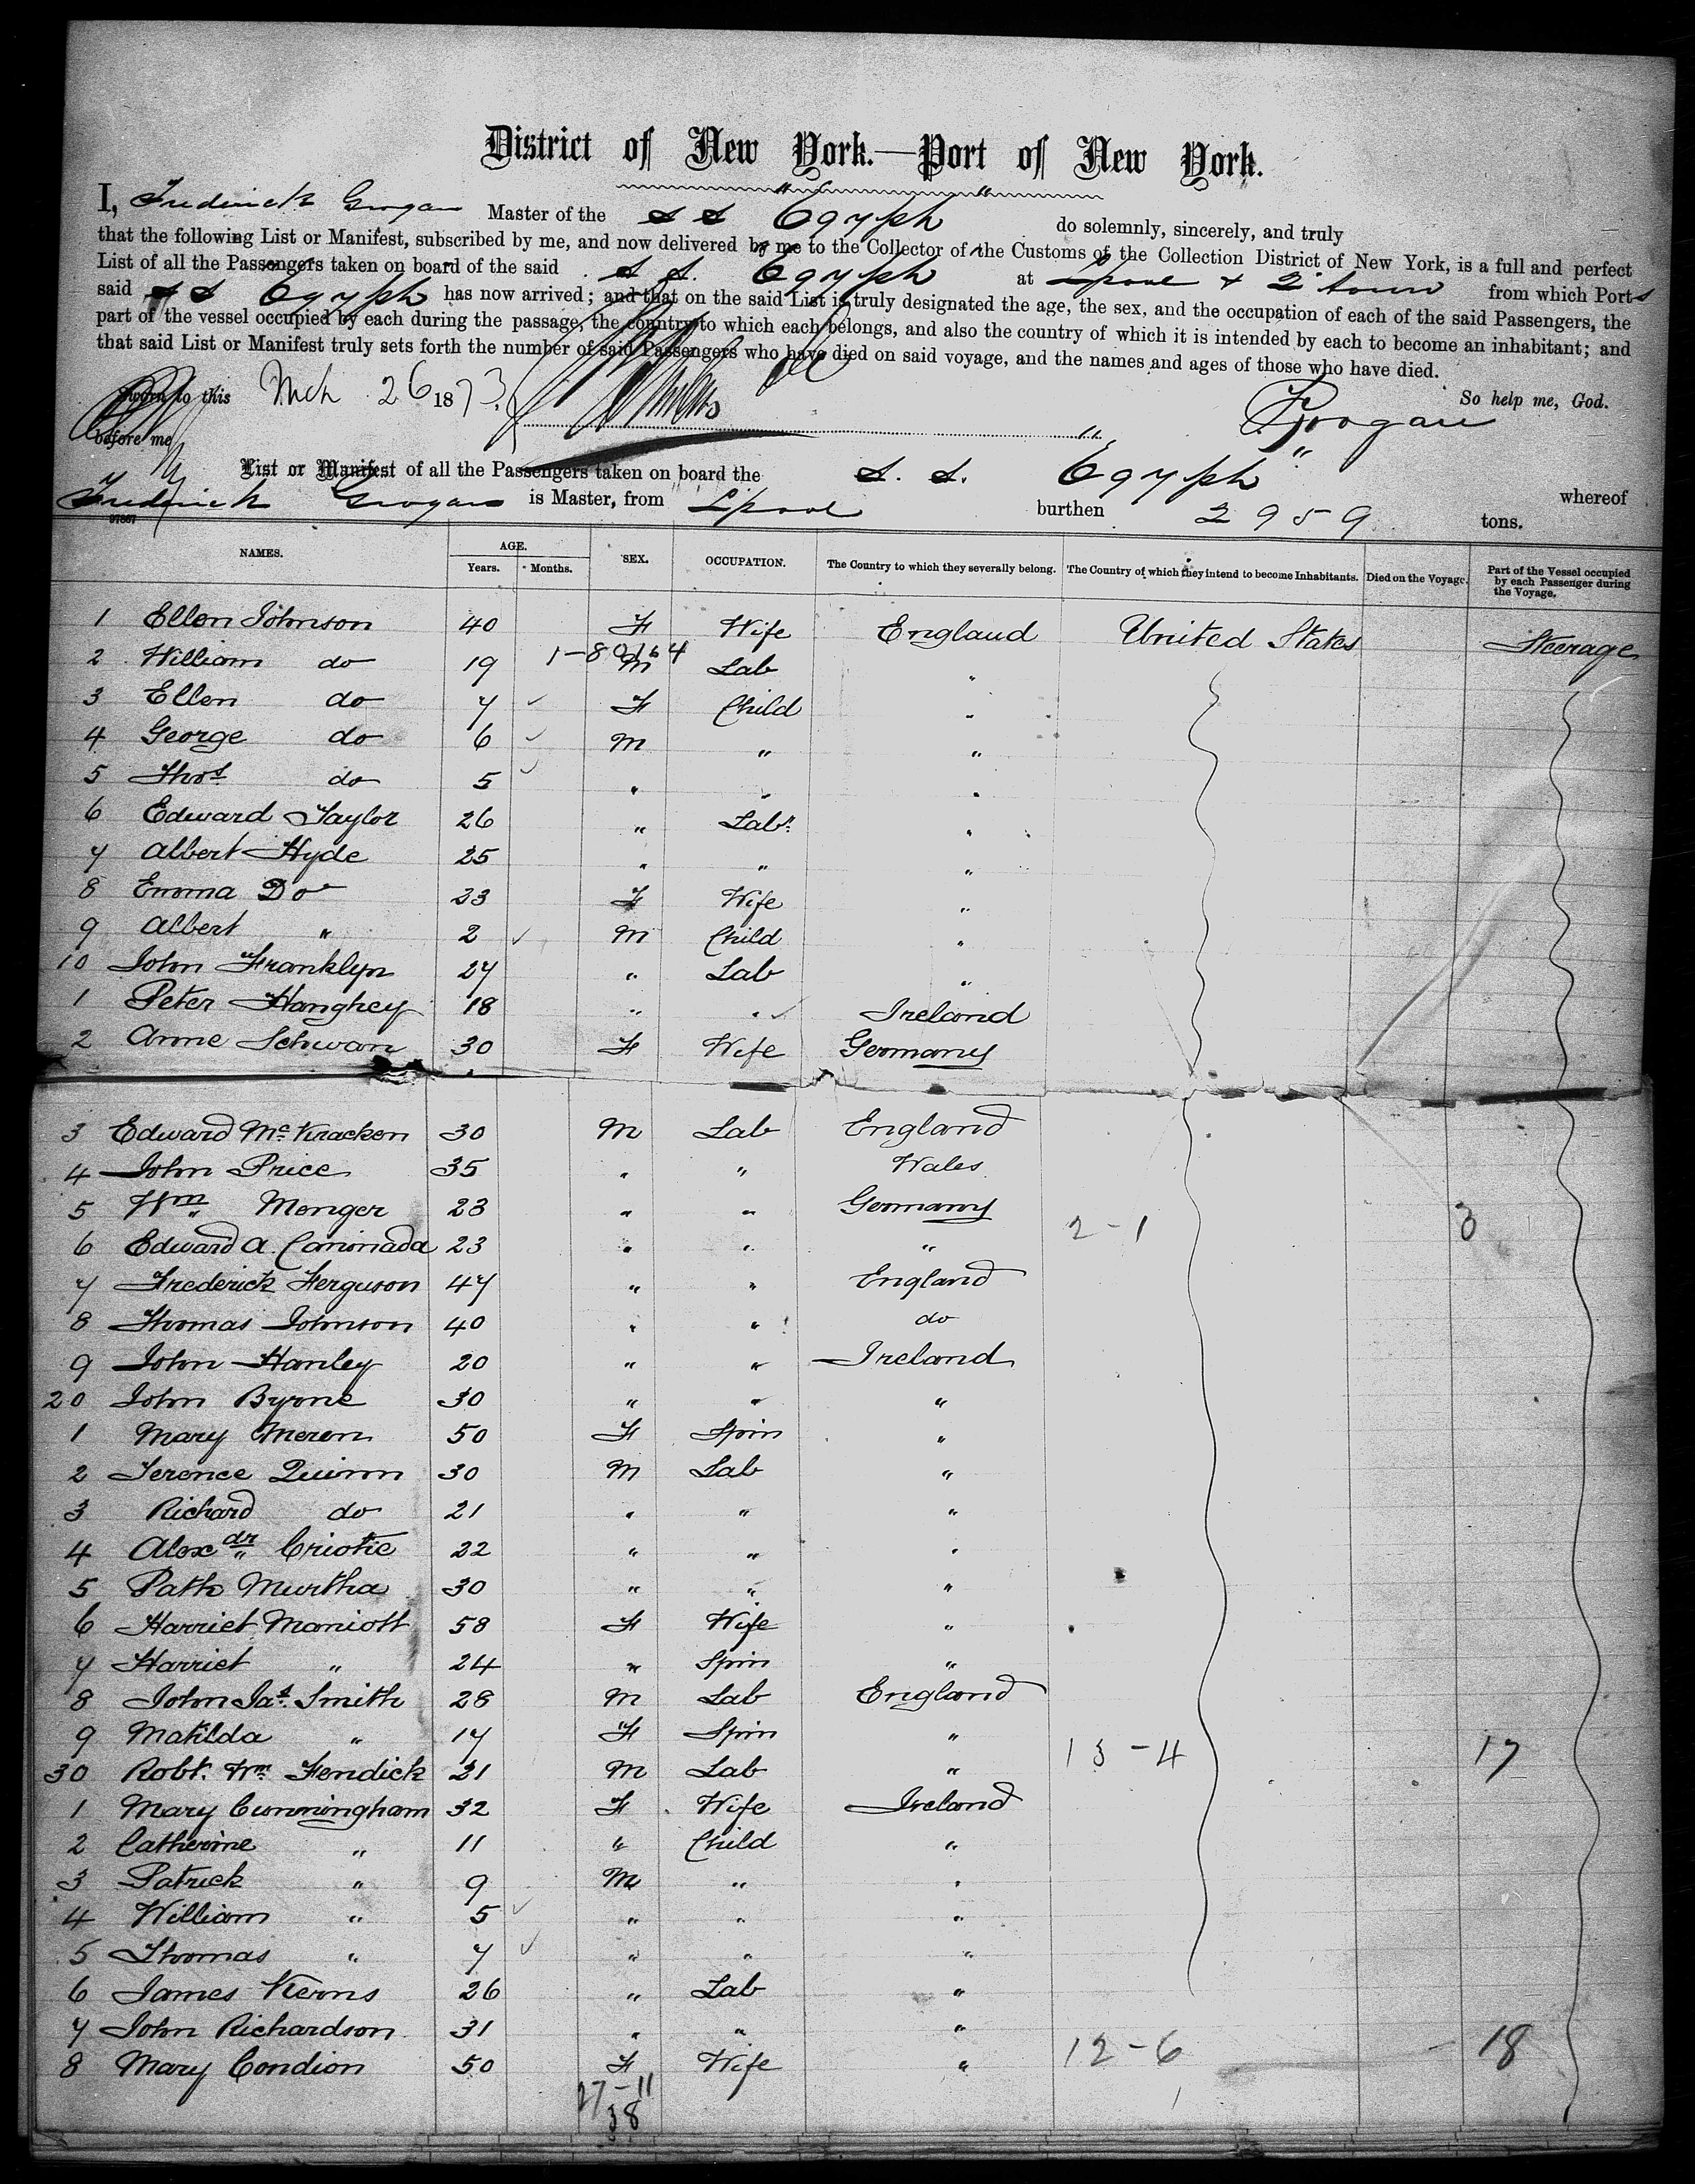 District of New York.—Port of New York.
I, Frederick Grogan Master of the S S Egypt do solemnly, sincerely, and truly
that the following List or Manifest, subscribed by me, and now delivered by me to the Collector of the Customs of the Collection District of New York, is a full and perfect
List of all the Passengers taken on board of the said S S. Egypt at Lpool & Q'town from which Ports
said S S Egypt has now arrived; and that on the said List is truly designated the age, the sex, and the occupation of each of the said Passengers, the
part of the vessel occupied by each during the passage, the country to which each belongs, and also the country of which it is intended by each to become an inhabitant; and
that said List or Manifest truly sets forth the number of said Passengers who have died on said voyage, and the names and ages of those who have died.
Sworn to this Mch 26 1873 So help me, God.
before me F Grogan
List or Manifest of all the Passengers taken on board the S. S. Egypt whereof
Frederick Grogan is Master, from Lpool burthen 2959 tons.
97867
NAMES. AGE. Years. Months. SEX. OCCUPATION. The Country to which they severally belong. The Country of which they intend to become Inhabitants. Died on the Voyage. Part of the Vessel occupied by each Passenger during the Voyage.
1 Ellen Johnson 40 F Wife England United States Steerage
1-80164
2 William do 19 M Lab "
3 Ellen do 7 ✓ F Child "
4 George do 6 ✓ M " "
5 Thos do 5 ✓ " " "
6 Edward Taylor 26 " Labr "
7 Albert Hyde 25 " " "
8 Emma Do 23 F Wife "
9 Albert " 2 ✓ M Child "
10 John Franklyn 27 " Lab "
1 Peter Hanghey 18 " " ✓ Ireland
2 Anne Schwan 30 F Wife Germany
3 Edward McKracken 30 M Lab England
4 John Price 35 " " Wales
5 Wm Monger 23 " " Germany 2-1 3
6 Edward A. 23 " " "
7 Frederick Ferguson 47 " " England
8 Thomas Johnson 40 " " do
9 John Hanley 20 " " Ireland
20 John Byrne 30 " " "
1 Mary Meren 50 F Spin "
2 Terence Quinn 30 M Lab "
3 Richard do 21 " " "
4 Alexdr Cristie 22 " " "
5 Patk Murtha 30 " " "
6 Harriet Marriott 58 F Wife "
7 Harriet " 24 " Spin "
8 John Jas. Smith 28 M Lab England
9 Matilda " 17 F Spin "
30 Robt. Wm Fendick 21 M Lab " 13-4 17
1 Mary Cunningham 32 F Wife Ireland
2 Catherine " 11 " Child "
3 Patrick " 9 M " "
4 William " 5 ✓ " " "
5 Thomas " 7 ✓ " " "
6 James Kerns 26 " Lab "
7 John Richardson 31 " " "
8 Mary Condion 50 F Wife " 12-6 18
27-11
38